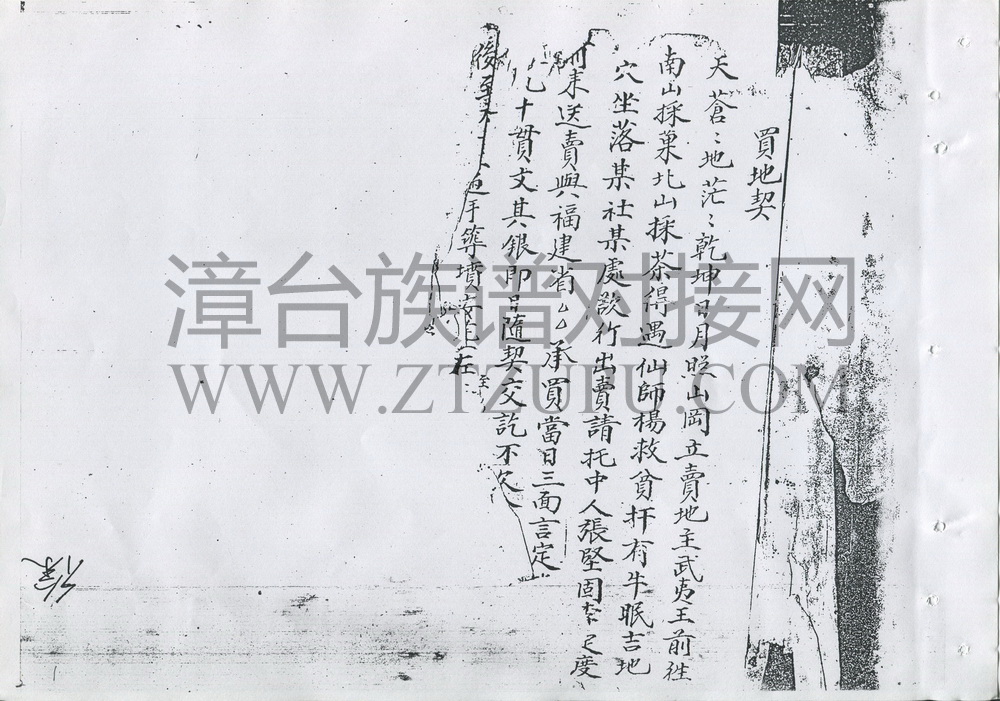 買地契
天蒼〻地茫〻乾坤日月照山岡立賣地主武夷王前往
南山採菓北山採茶得遇仙師楊救貧扦有牛眠吉地
穴坐落某社某處欲行出賣請托中人張堅固李定度
前來送賣與福建省厶厶承買當日三面言定
九十貫文其銀即日隨契交訖不欠
後至 手築墳安 左 至
徐
漳台族谱对接网
WWW.ZTZUPU.COM